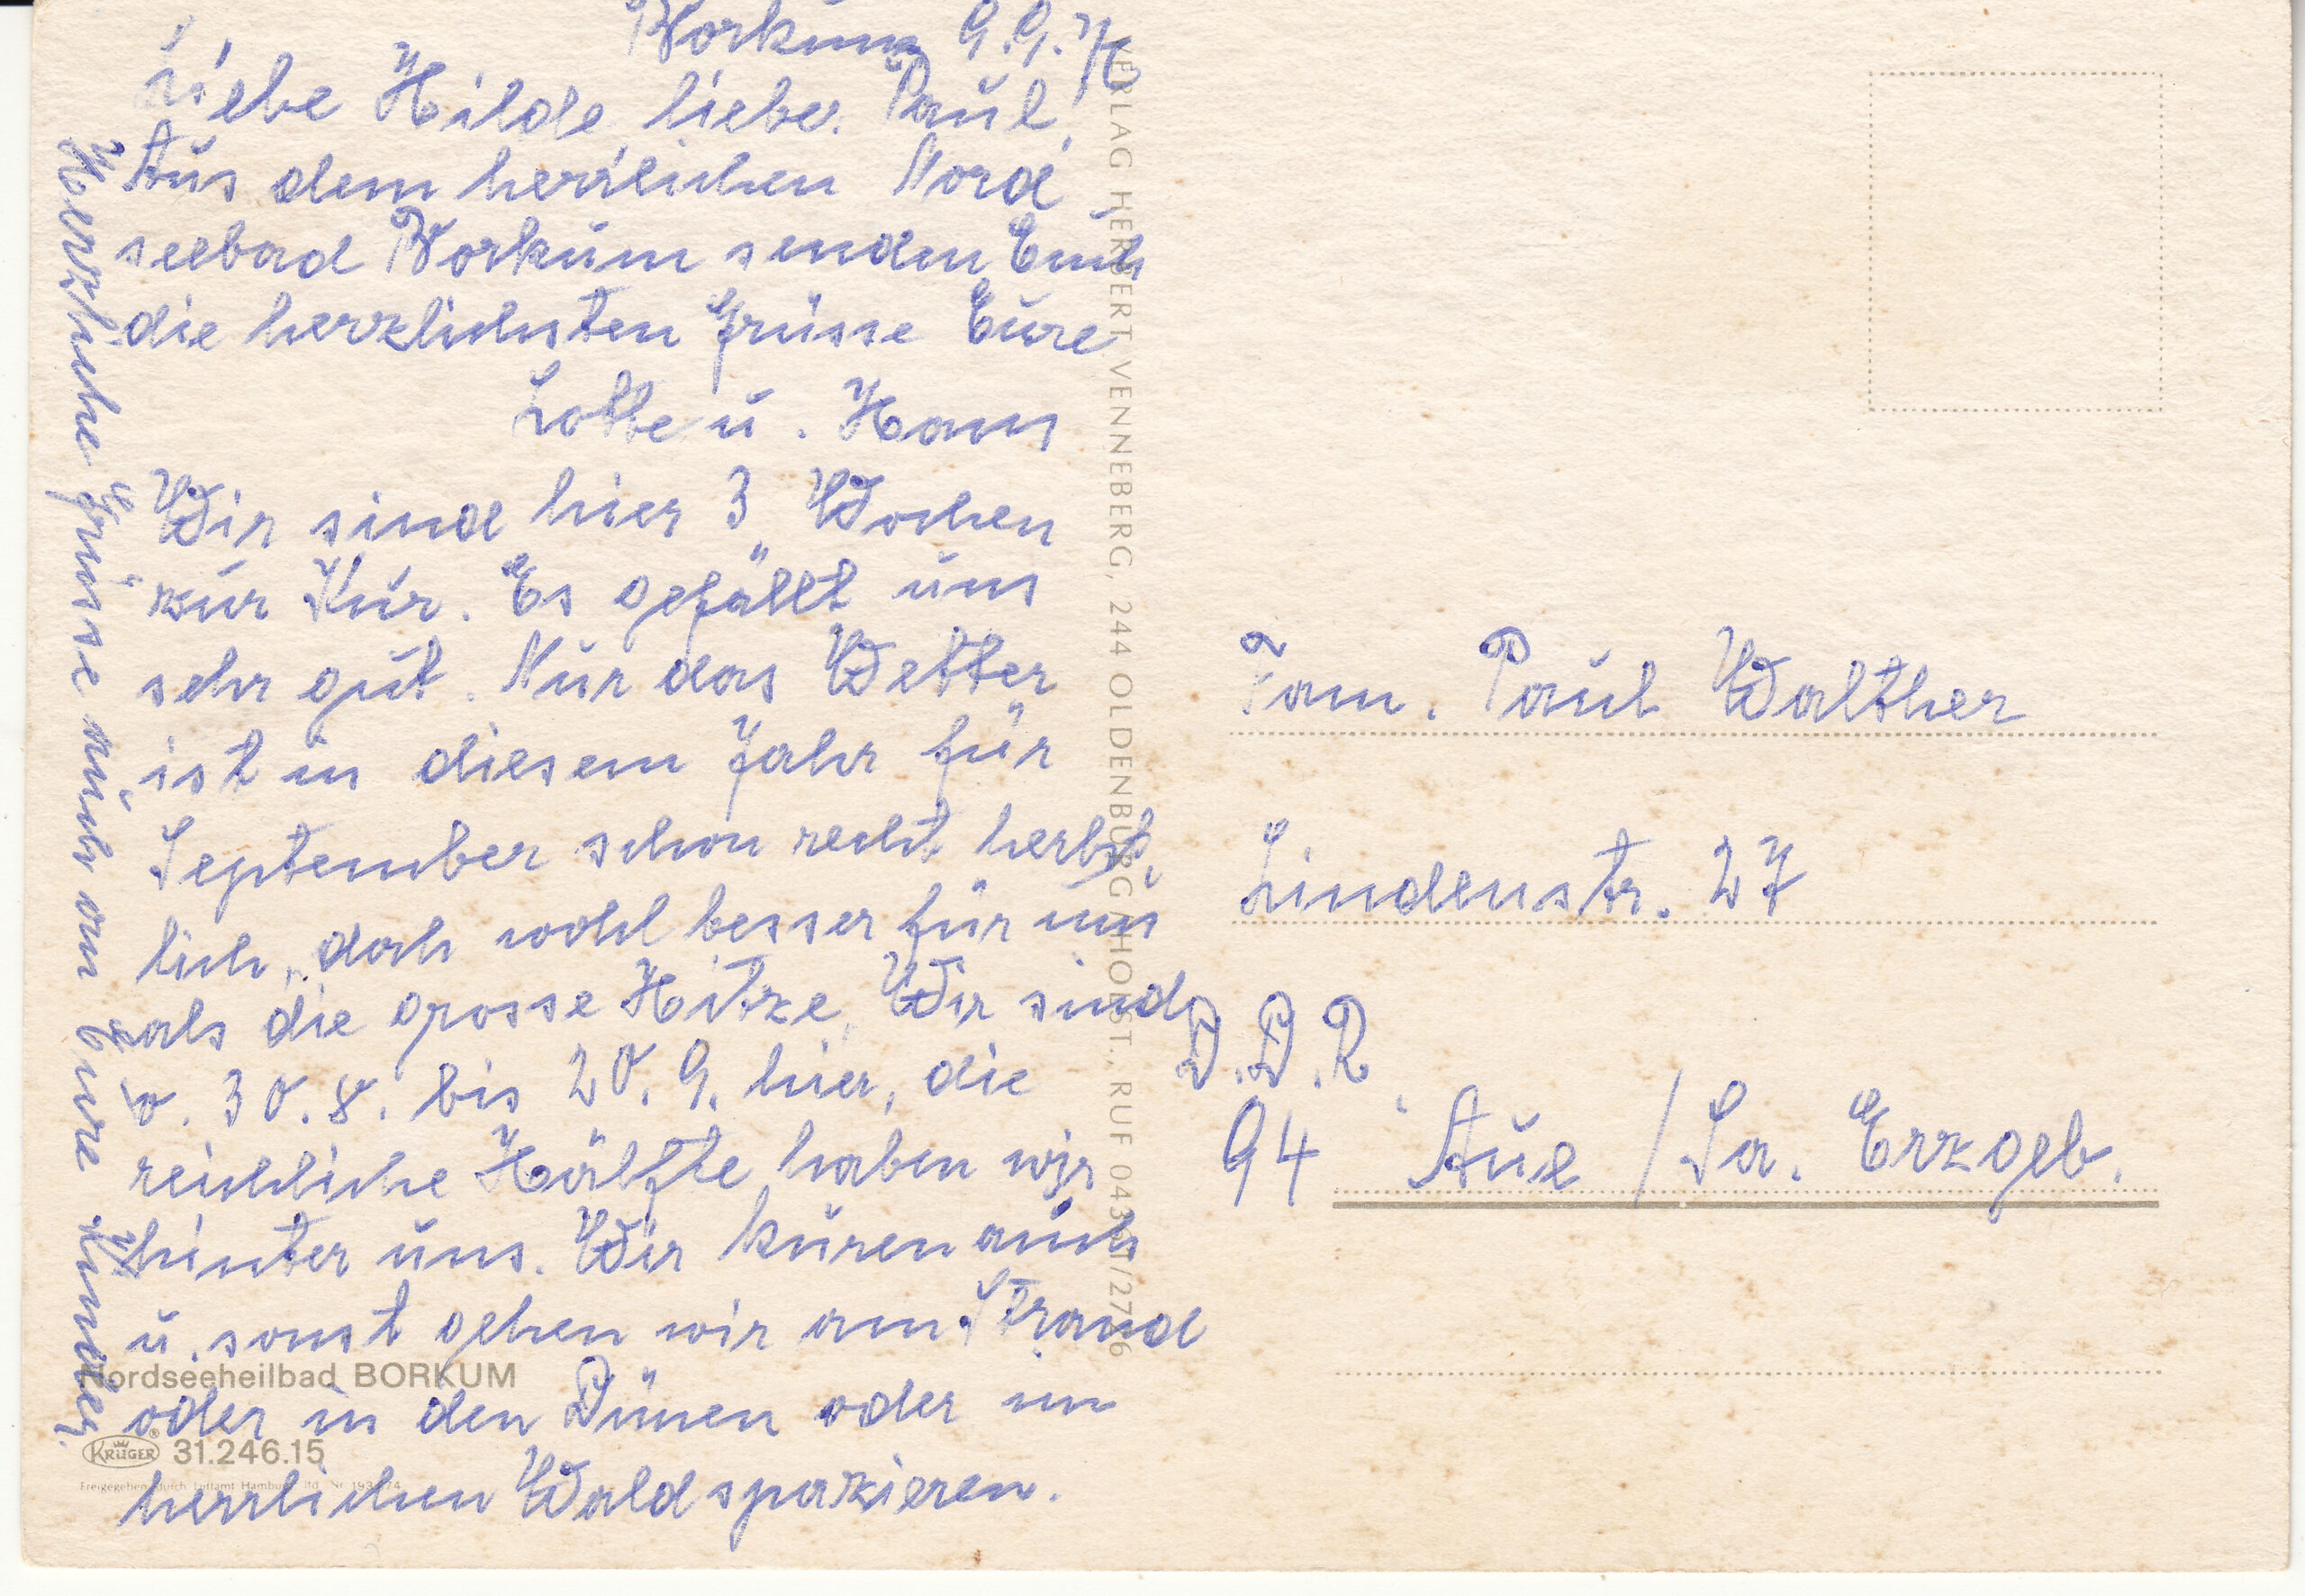 Borkum 9.9.76
Liebe Hilde, lieber Paul,
Aus dem herrlichen Nord
seebad Borkum senden Euch
die herzlichsten Grüsse Eure
Lotte u. Hans
Wir sind hier 3 Wochen
zur Kur. Es gefällt uns
sehr gut. Nur das Wetter
ist in diesem Jahr für
September schon recht herbst
lich, doch wohl besser für uns
als die grosse Hitze, Wir sind
v. 30.8. bis 20.9. hier, die
reichliche Hälfte haben wir
hinter uns. Wir kuren auch
u. sonst gehen wir am Strand
oder in den Dünen oder im
herrlichen Wald spazieren.
Herzliche Grüsse auch an Eure Kinder.
Nordseeheilbad BORKUM
KRÜGER® 31.246.15
Freigegeben durch Luftamt Hamburg
VERLAG HERBERT VENNEBERG, 244 OLDENBURG HOLST., RUF 04361/2766
Fam. Paul Walther
Lindenstr. 27
D.D.R
94 Aue / Sa. Erzgeb.